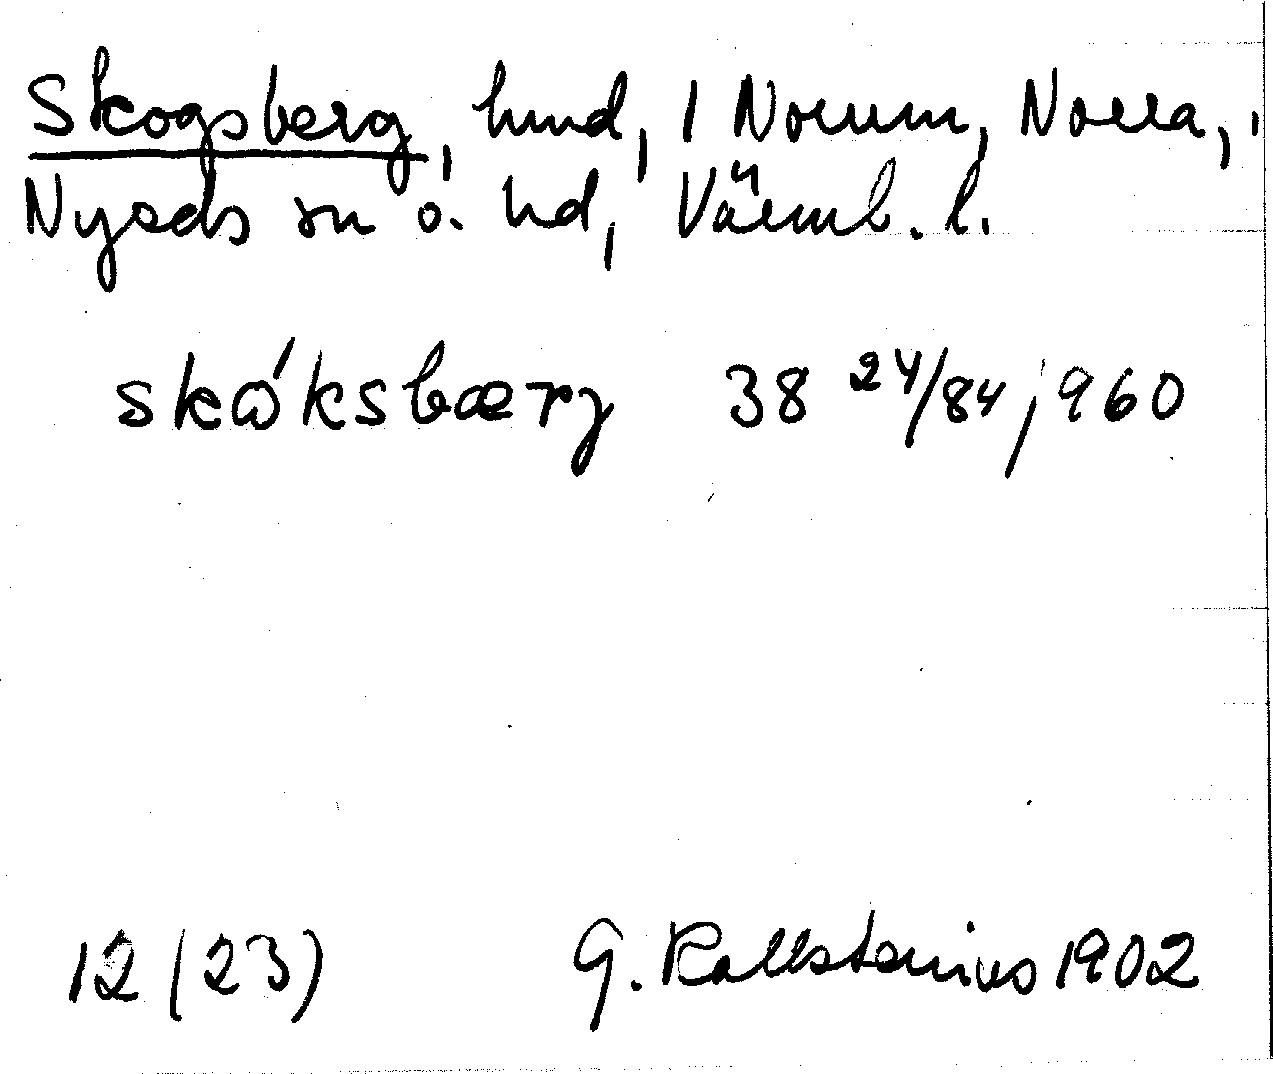 Skogsberg, hmd, 1 Norum, Norra, i
Nyeds sn o. hd, Värml. l.
skɷ́ksbærj 38 24/84, 960
12 (23) G. Kallstenius 1902